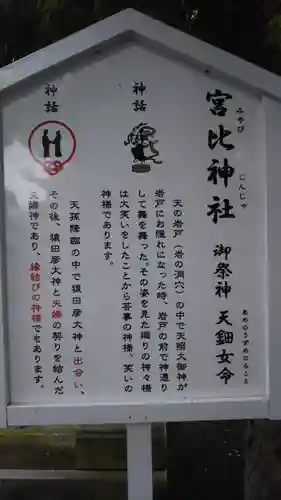 宮比神社
みやび じんじゃ
御祭神 天鈿女命
あめのうずめのみこと
神話
天の岩戸（岩の洞穴）の中で天照大御神が
岩戸にお隠れになった時、岩戸の前で神憑り
して舞を舞った。その姿を見た廻りの神々様
は大笑いをしたことから芸事の神様、笑いの
神様であります。
神話
天孫降臨の中で猿田彦大神と出会い、
その後、猿田彦大神と夫婦の契りを結んだ
夫婦神であり、縁結びの神様でもあります。